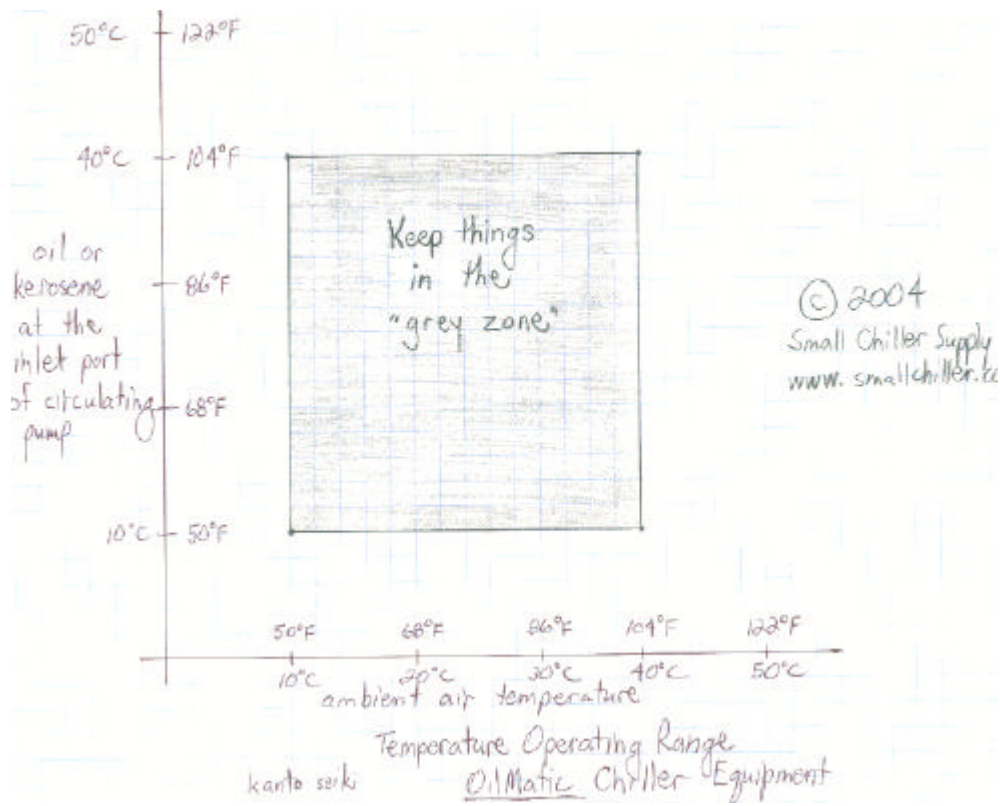 50°C 122°F
40°C 104°F
Keep things
in the
"grey zone"
oil or
kerosene
at the
inlet port
of circulating
pump
86°F
68°F
10°C 50°F
© 2004
Small Chiller Supply
www.smallchiller.co
50°F 68°F 86°F 104°F 122°F
10°C 20°C 30°C 40°C 50°C
ambient air temperature
Temperature Operating Range
kanto seiki OilMatic Chiller Equipment